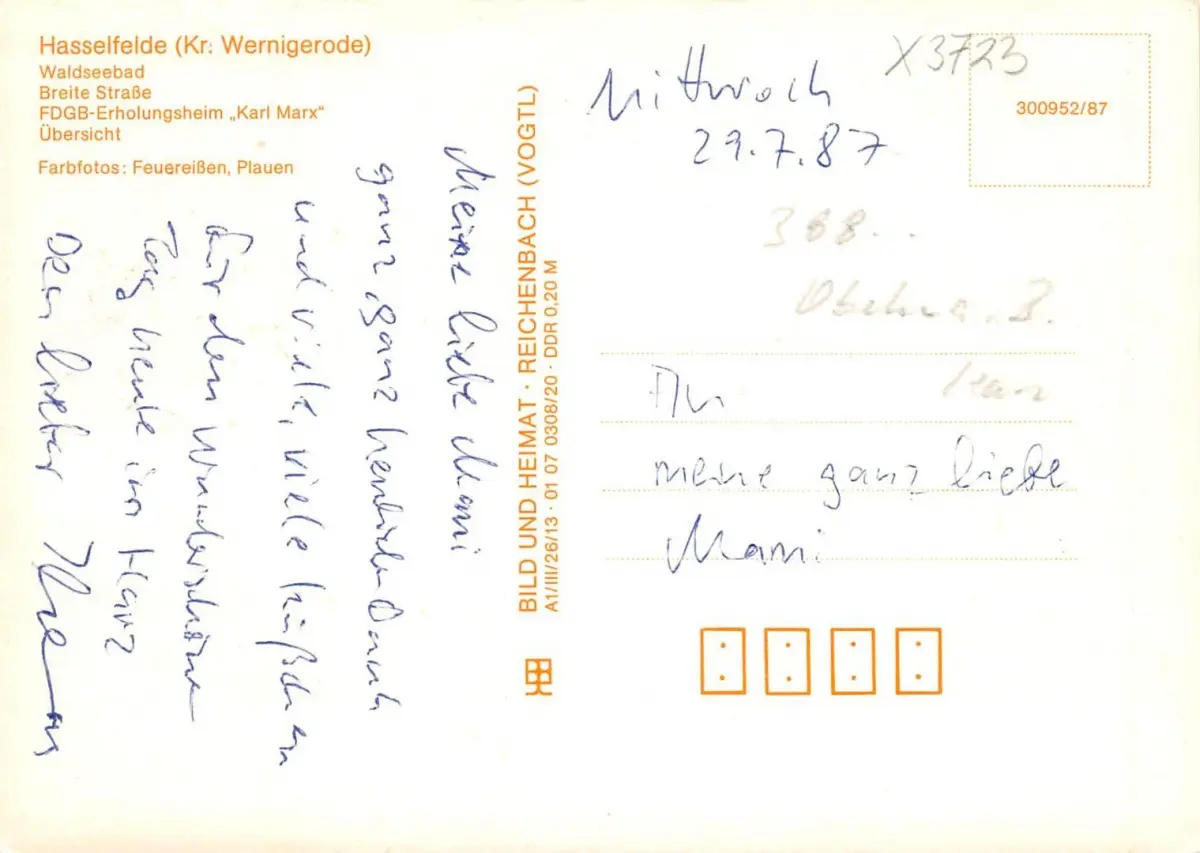 Hasselfelde (Kr. Wernigerode)
Waldseebad
Breite Straße
FDGB-Erholungsheim „Karl Marx“
Übersicht
Farbfotos: Feuereißen, Plauen
Meine liebe Mami
ganz, ganz herzlichen Dank
und viele, viele Küßchen
für den wunderschönen
Tag heute im Harz
Dein lieber
BILD UND HEIMAT · REICHENBACH (VOGTL)
A1/III/26/13 · 01 07 0308/20 · DDR 0,20 M
Mittwoch
29.7.87
X3723
300952/87
368...
An
meine ganz liebe
Mami